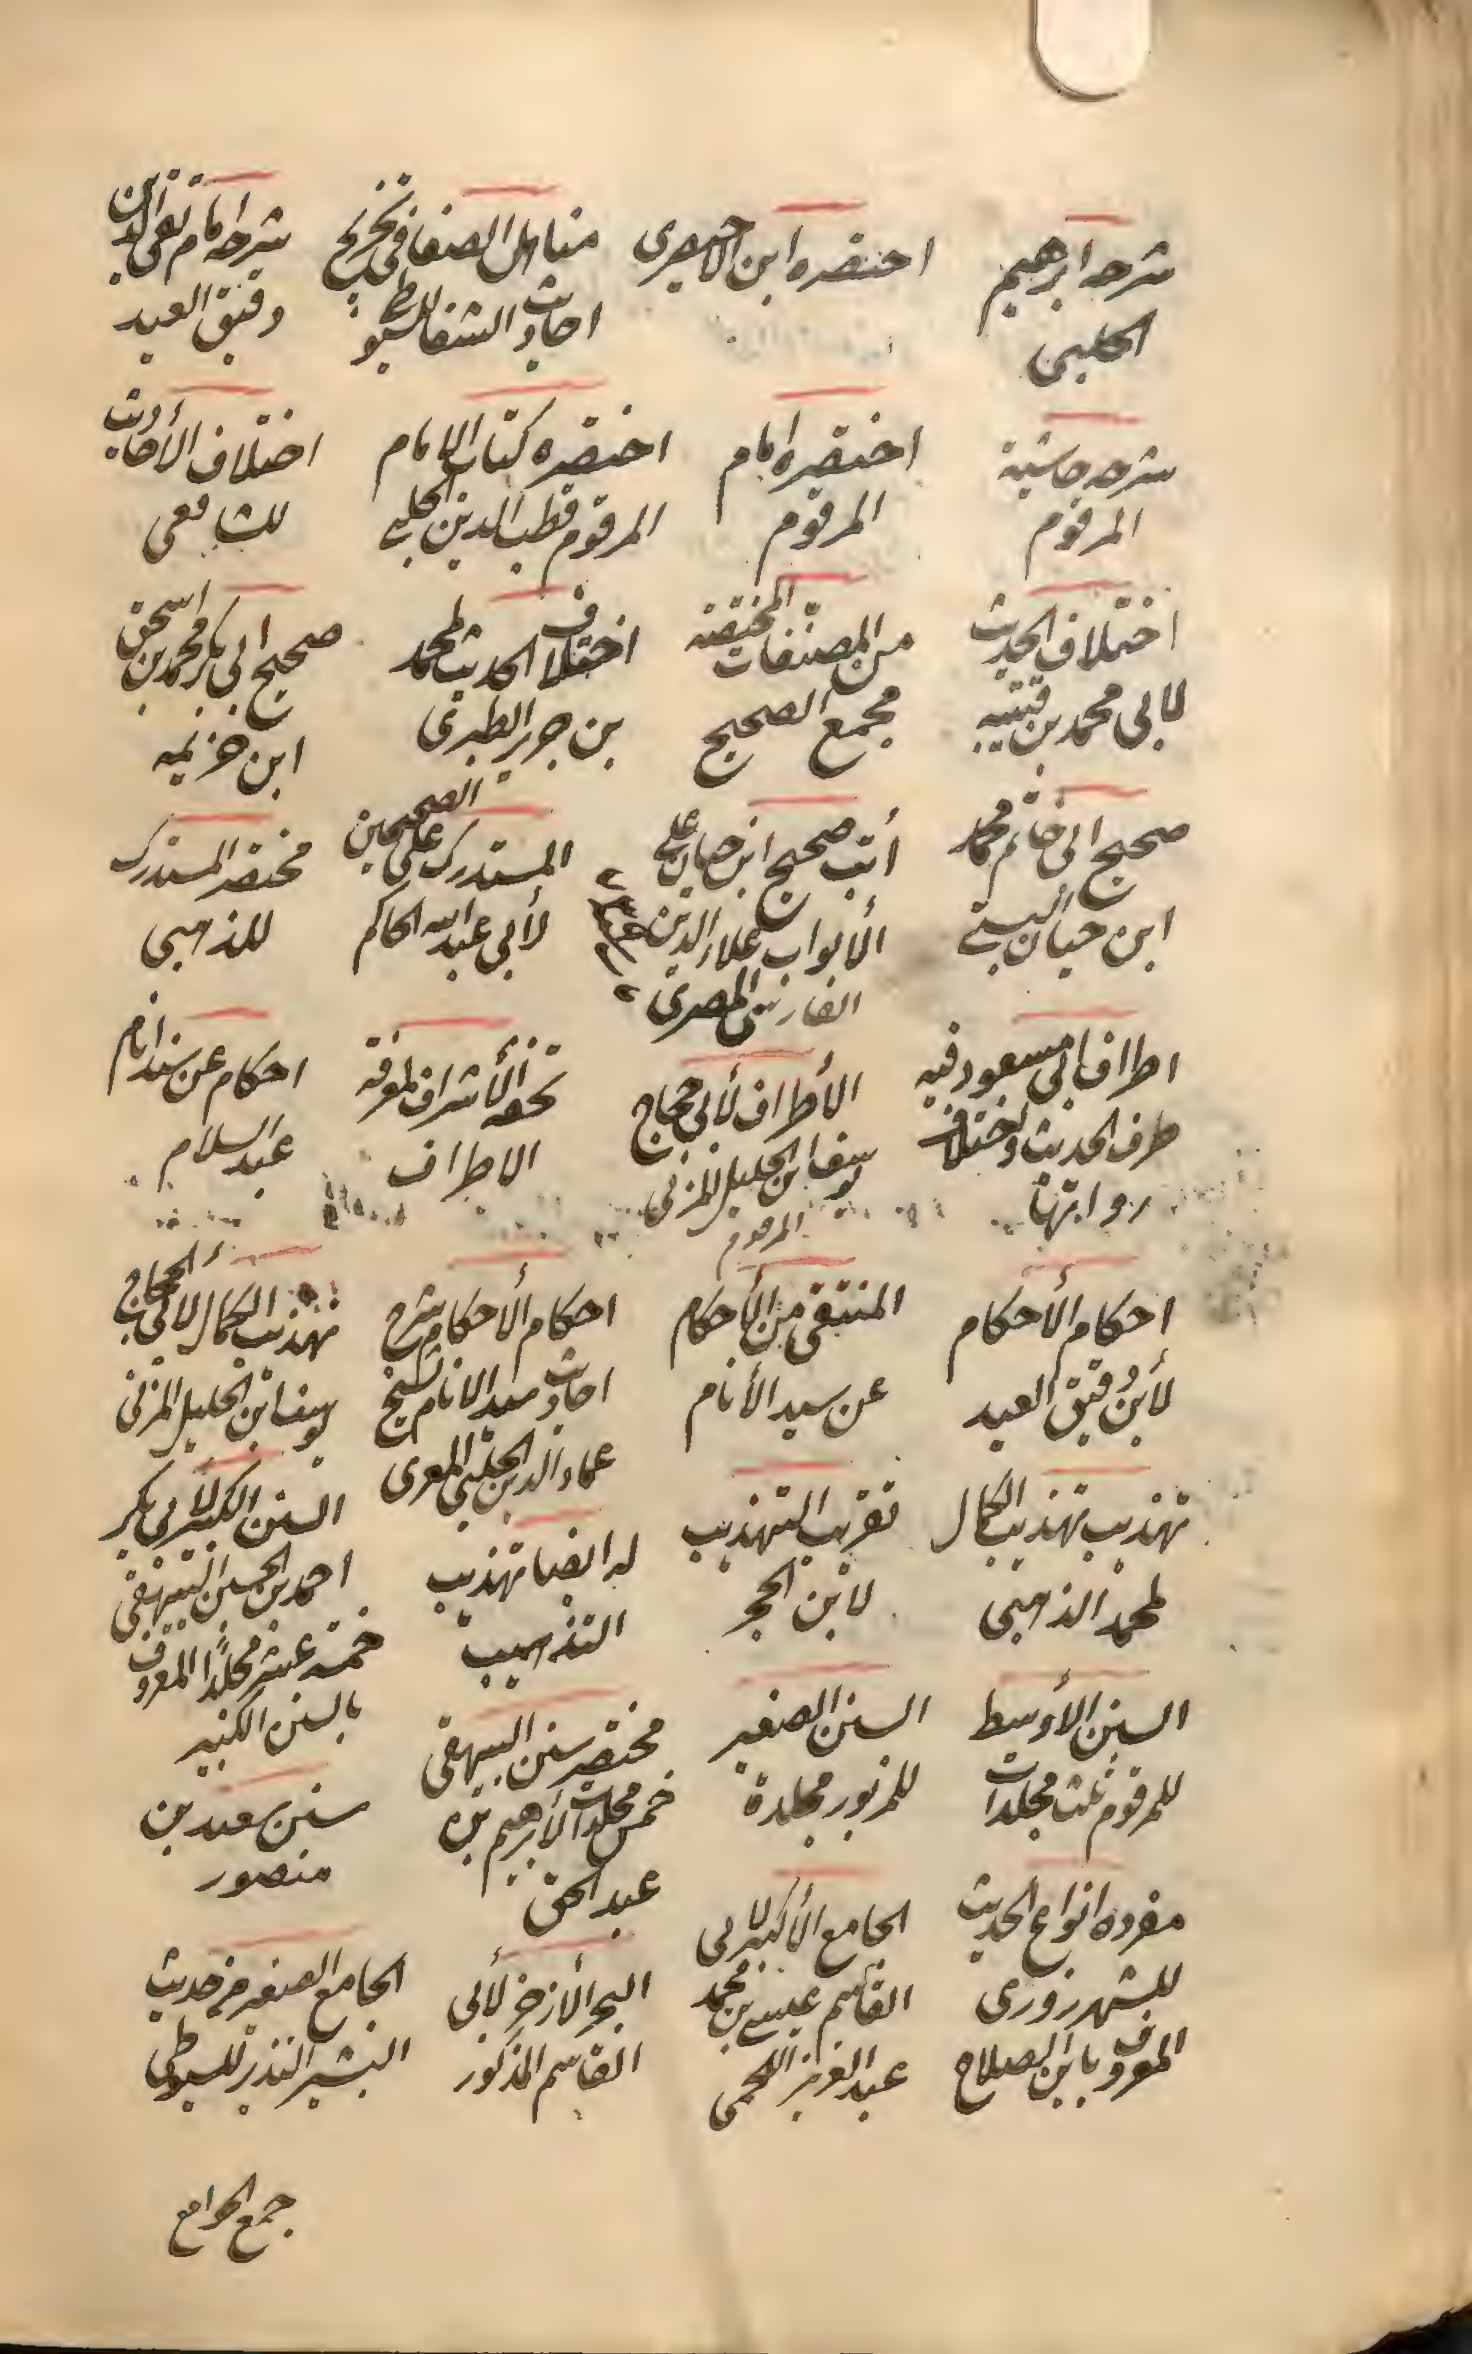 شرحه ابرهيم
الحلبى
اختصره ابن الاحيصرى
مناهل الصفا فى تخريج
احاديث الشفا للسيوطى
شرحه امام تقى الدين
دقيق العيد
شرحه حاشية
المرقوم
اختصره امام
المرقوم
اختصره كتاب الامام
المرقوم قطب الدين الحلبى
اختلاف الأحاديث
للشافعى
اختلاف الحديث
لابى محمد بن قتيبه
من المصنفات المختصّه
مجمع الصحيح
اختلاف الحديث لمحمد
بن جرير الطبرى
صحيح ابى بكر محمد بن اسحق
ابن خزيمه
صحيح ابى حاتم محمد
ابن حبان البستى
صحيح ابن حبان على
الأبواب علاء الدين
الفارسى المصرى
المستدرك على الصحيحين
لأبى عبد الله الحاكم
مختصر المستدرك
للذهبى
اطراف ابى مسعود فيه
طرف الحديث واختلاف
رواياتها
الأطراف لأبى حجاج
يوسف ابن الجليل المزنى
المرقوم
تحفه الأشراف لمعرفة
الاطراف
احكام عن سند انام
عبد السلام
احكام الأحكام
لأبن دقيق العيد
المنتقى من الأحكام
عن سيد الأنام
احكام الأحكام شرح
احاديث سيد الانام لشيخ
عماد الدين الحلبى المعرى
تهذيب الكمال لأبى الحجاج
يوسف ابن الجليل المزنى
تهذيب تهذيب الكمال
لمحمد الذهبى
تقريب التهذيب
لابن الحجر
له ايضا تهذيب
التذهيب
السنن الكبير لأبى بكر
احمد بن الحسين البيهقى
خمسه عشر مجلدًا المعروف
بالسنن الكبير
السنن الأوسط
للمرقوم ثلث مجلدات
السنن الصغير
للمزبور مجلدة
مختصر سنن البيهقى
خمس مجلدات لأبرهيم بن
عبد الحق
سنن سعيد بن
منصور
مفرده انواع الحديث
للشهرزورى
المعروف بابن الصلاح
الجامع الأكبر لابى
القاسم عيسى بن محمد
عبد العزيز اللخمى
البحر الأزخر لأبى
القاسم المذكور
الجامع الصغير من حديث
البشير النذير للسيوطى
جمع الجوامع